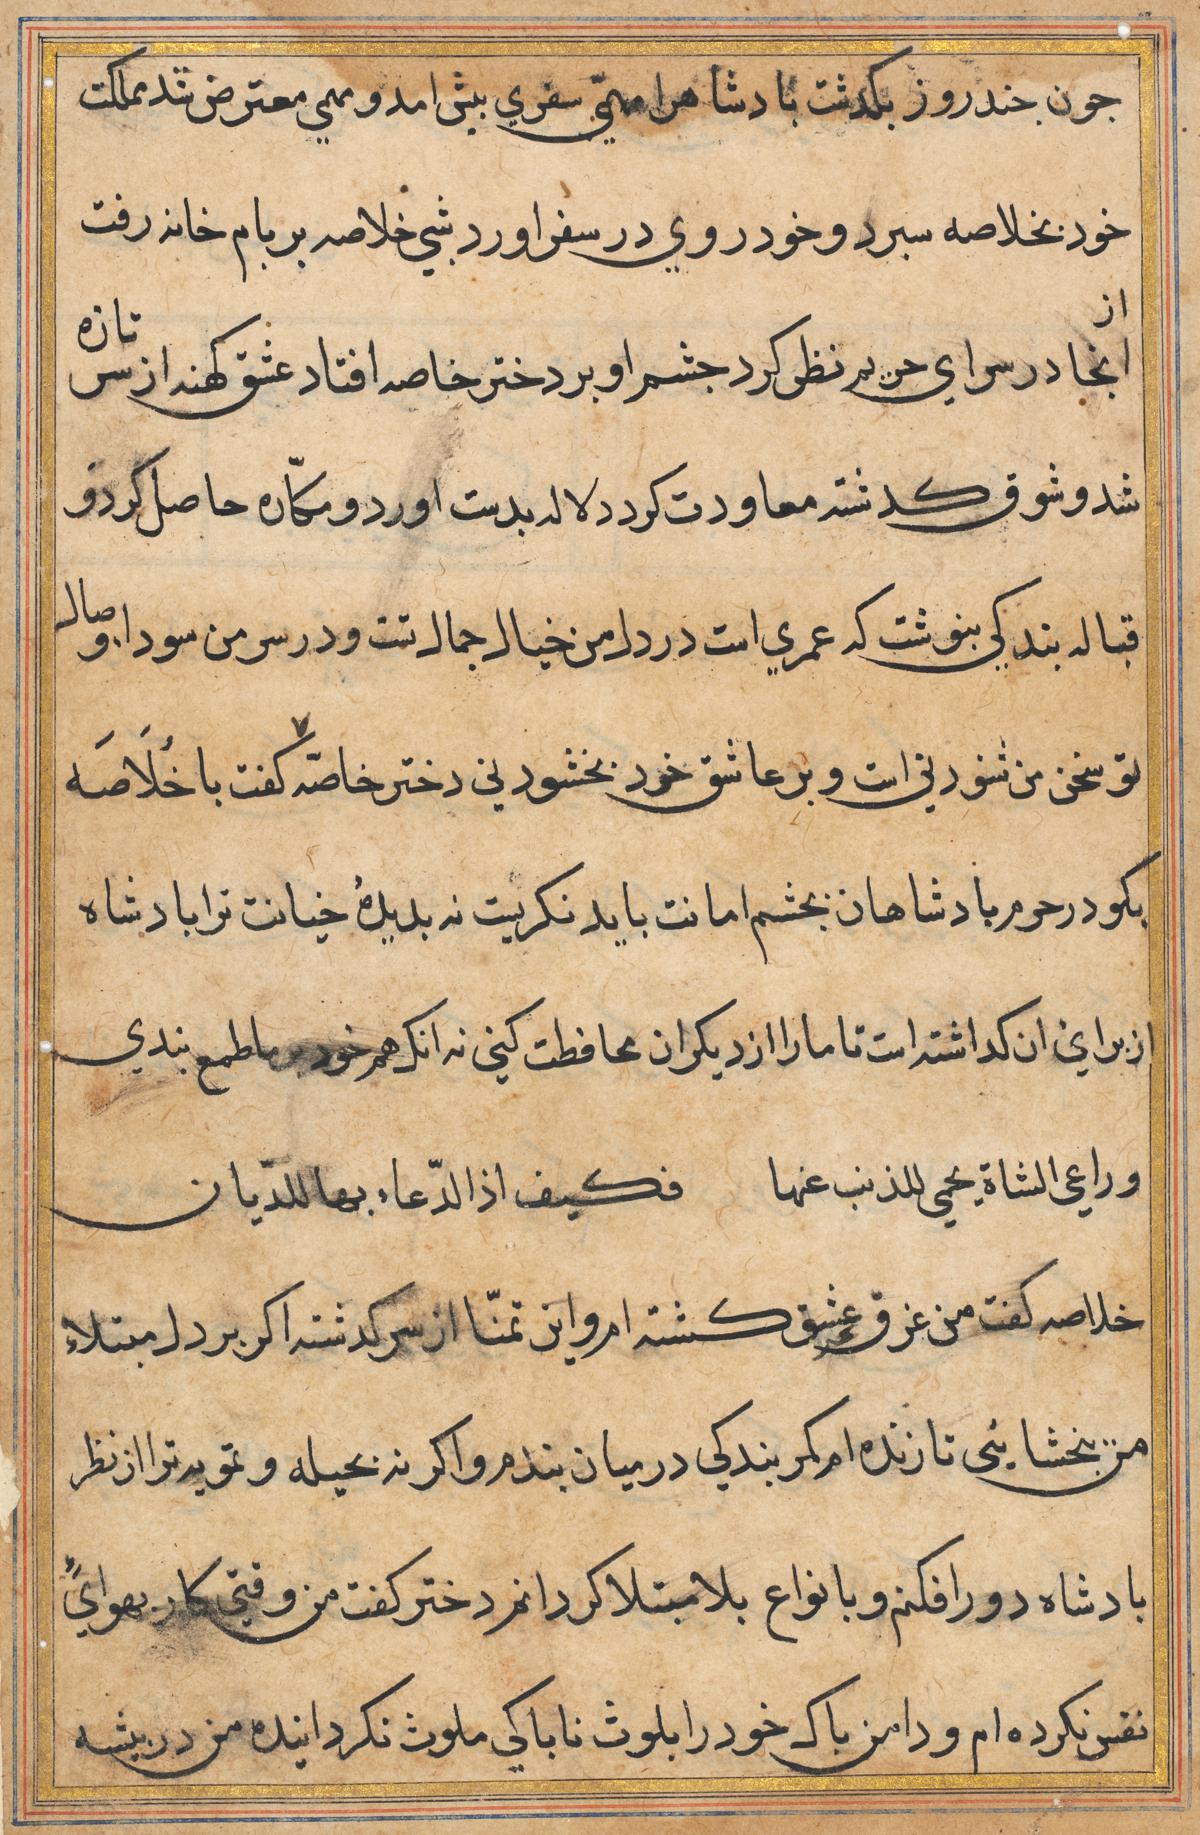 جون جند روز بكدشت بادشاه را مهمّي سفري بيش امد و مهمي معترض شد مملكت
خود بخلاصه سبرد و خود روي در سفر اورد شبي خلاصه بر بام خانه رفت
از انجا در سراي حريم نظر كرد جشم او بر دختر خاصه افتاد عشق كهنه از سر تازه
شد و شوق كدشته معاودت كرد دلاله بدست اورد و مكّاره حاصل كرد و
قباله بندكي بنوشت كه عمري است در دل من خيال جمال تست و در سر من سوداء وصال
تو سخن من شنودني است و بر عاشق خود بخشودني دختر خاصّه كفت با خُلَاصَه
بكو در حرم بادشاهان بخشم امانت بايد نكريست نه بديدهٔ خيانت ترا بادشاه
از براي ان كداشته است تا مارا از ديكران محافظت كني نه انك هم خود بر ما طمع بندي
و راعي الشاة يحمي للذئب عنها فكيف اذا الدّعاء بها للذّيان
خلاصه كفت من غرق عشق كشته ام و اين تمنّا از سر كدشته اكر بر دل مبتلاء
من بخشايئ تا زنده ام كمر بندكي در ميان بندم و اكر نه بحيله و تمويه ترا از نظر
بادشاه دور افكنم و بانواع بلا مبتلا كردانم دختر كفت من وقتي كار بهواي
نفس نكرده ام و دامن باك خود را بلوث ناباكي ملوث نكردانيده من در بيشه